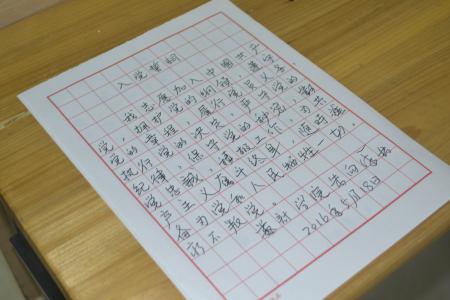 入党誓词
我志愿加入中国共产
党，拥护党的纲领，遵守
党的章程，履行党员义务，
执行党的决定，严守党的
纪律，保守党的秘密，对
党忠诚，积极工作，为共
产主义奋斗终身，随时准
备为党和人民牺牲一切，
永不叛党。
会计学院
2016年5月18日